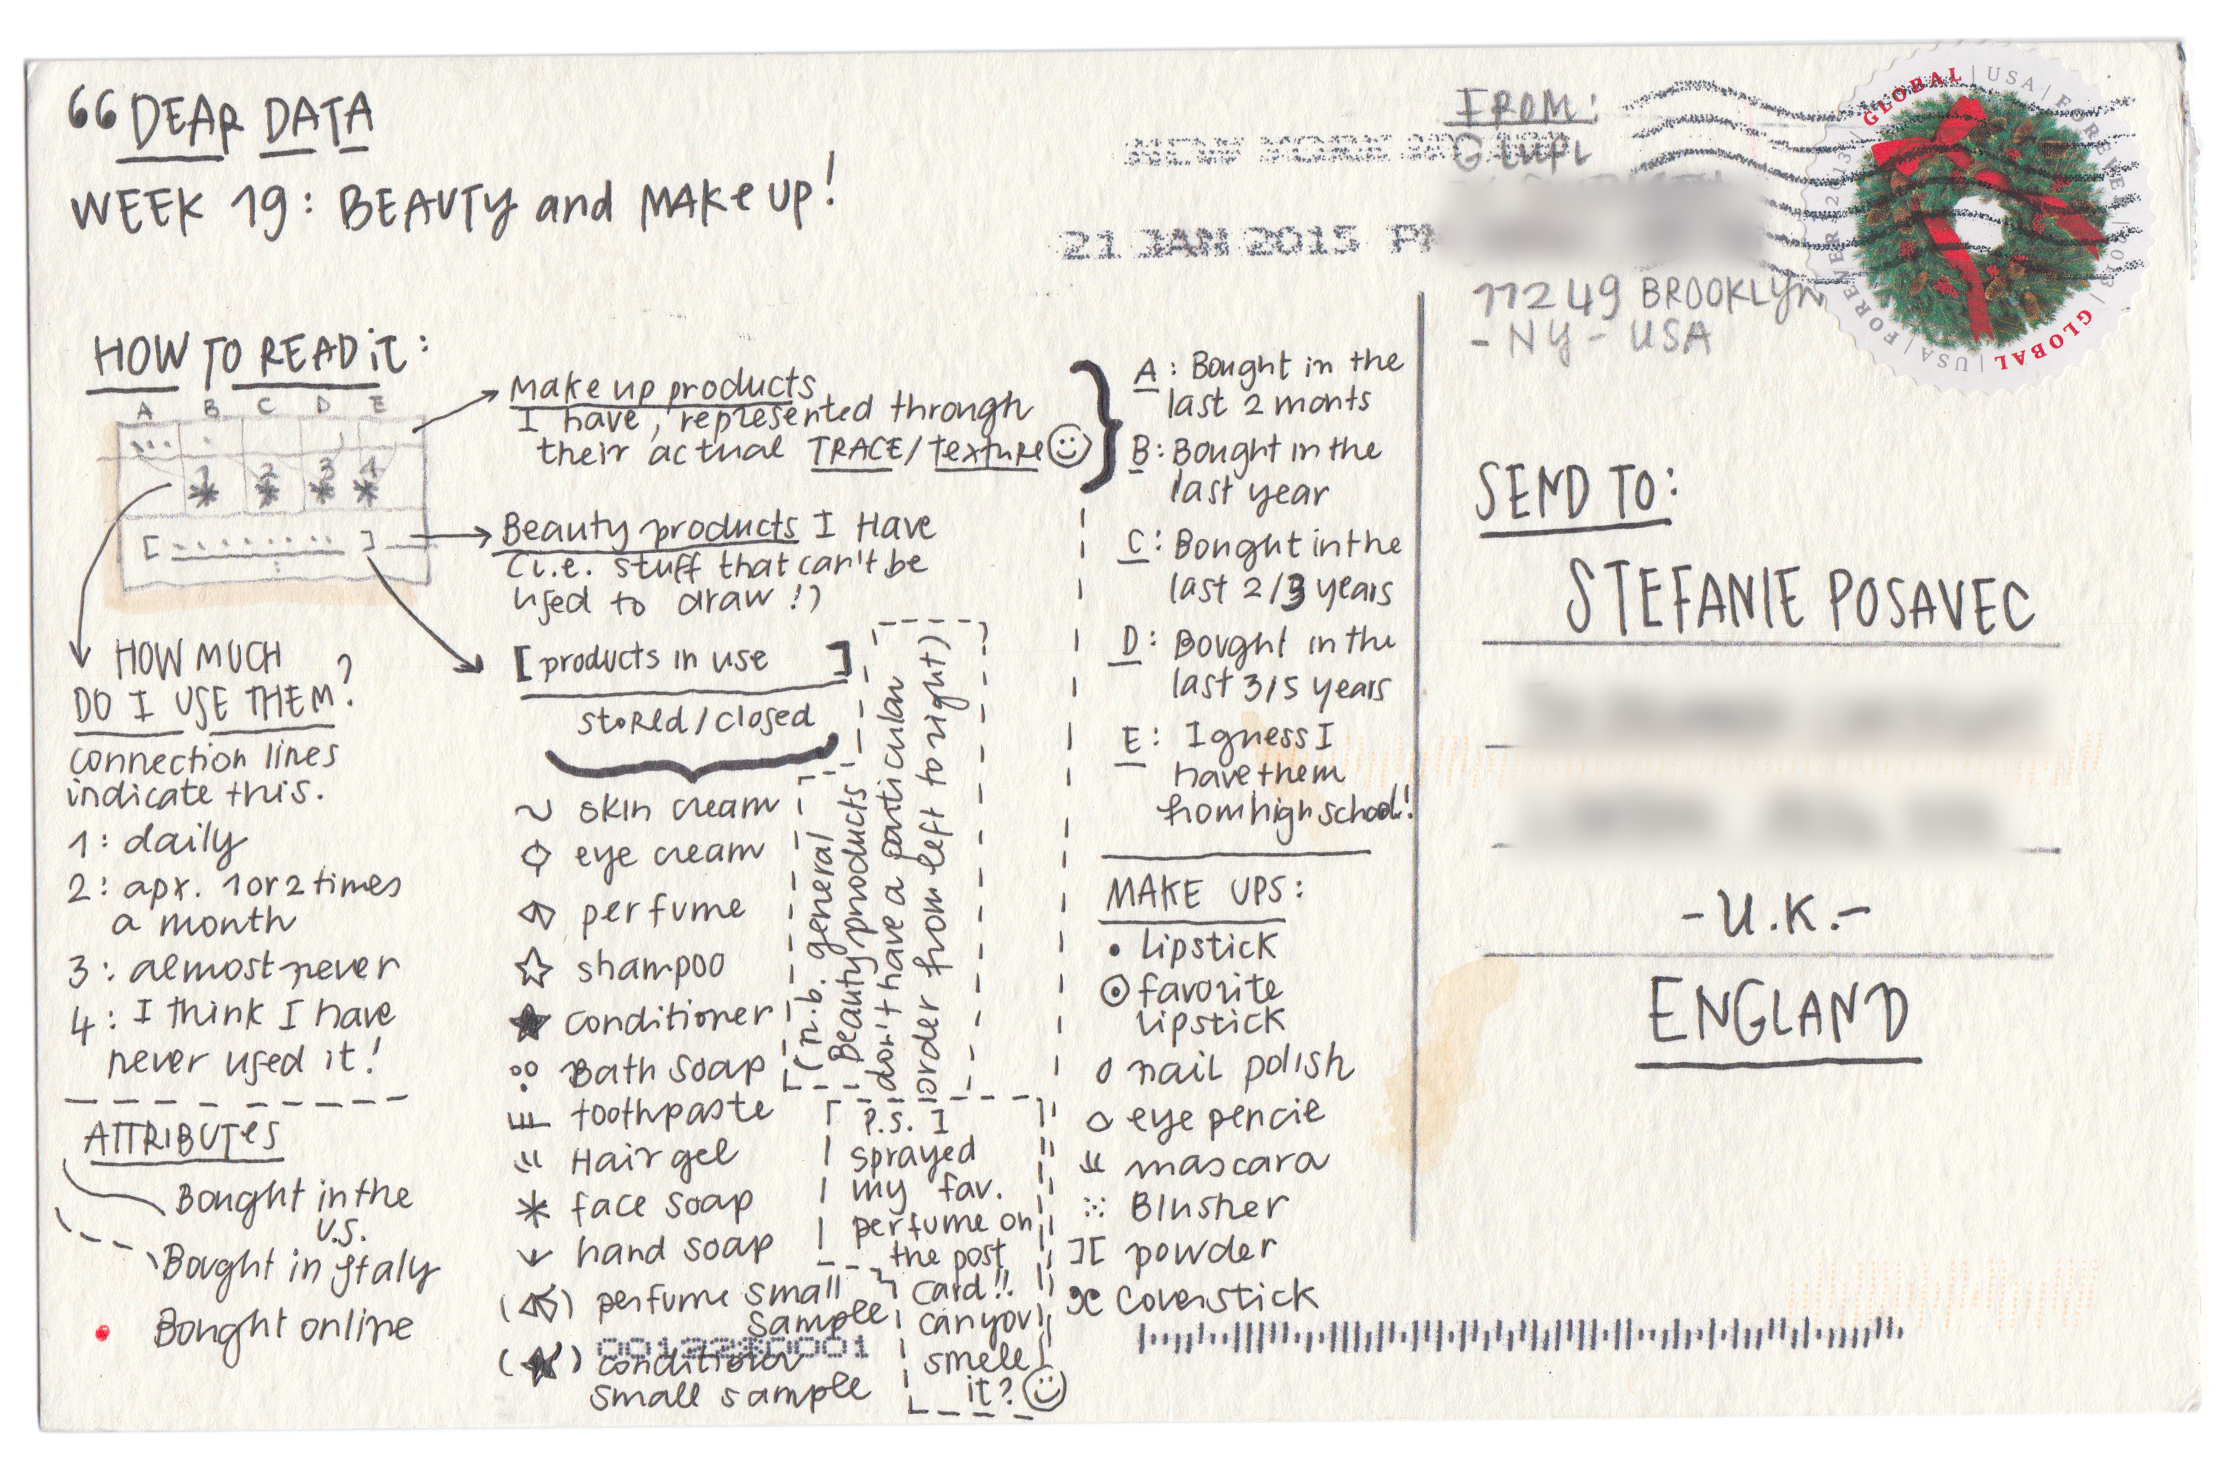 66 DEAR DATA
WEEK 19: BEAUTY and MAKE UP!
NEW YORK NY
21 JAN 2015
FROM:
G. LUPI
11249 BROOKLYN
- NY - USA
GLOBAL | USA | FOREVER | 2013 | GLOBAL | USA | FOREVER | 2013 |
HOW TO READ iT:
A B C D E
1 2 3 4
[ ]
Make up products
I have, represented through
their actual TRACE/Texture
Beauty products I Have
(i.e. stuff that can't be
used to draw!)
[products in use ]
stored/closed
HOW MUCH
DO I USE THEM?
connection lines
indicate this.
1: daily
2: apx. 1 or 2 times
a month
3: almost never
4: I think I have
never used it!
ATTRIBUTES
Bought in the
U.S.
Bought in Italy
Bought online
skin cream
eye cream
perfume
shampoo
conditioner
Bath soap
toothpaste
Hair gel
face soap
hand soap
( ) perfume small
sample
( ) conditioner
small sample
0012280001
(n.b. general
Beauty products
don't have a particular
order from left to right)
P.S. I
sprayed
my fav.
perfume on
the post
card!!
can you
smell
it?
A: Bought in the
last 2 monts
B: Bought in the
last year
C: Bought in the
last 2/3 years
D: Bought in the
last 3/5 years
E: I guess I
have them
from high school!
MAKE UPS:
lipstick
favorite
lipstick
nail polish
eye pencil
mascara
Blusher
powder
coverstick
SEND TO:
STEFANIE POSAVEC
-U.K.-
ENGLAND